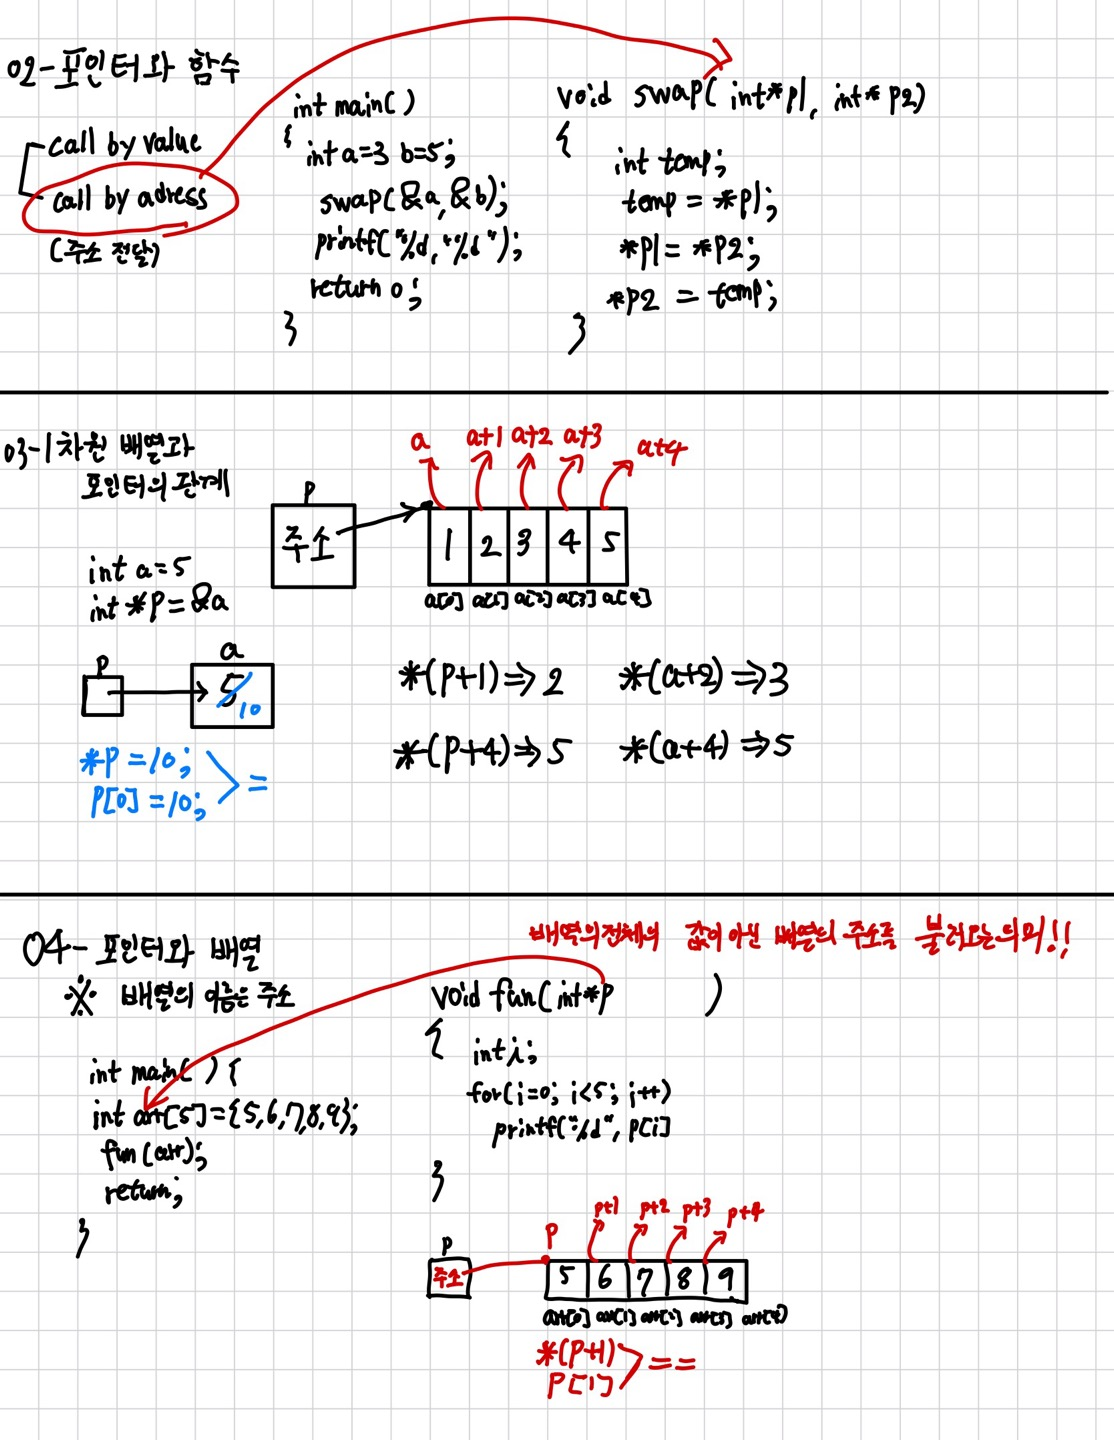 02-포인터와 함수
call by value
call by adress
(주소 전달)
int main( )
{
int a=3 b=5;
swap(&a, &b);
printf("%d, %d");
return 0;
}
void swap( int*p1, int* p2)
{
int temp;
temp = *p1;
*p1 = *p2;
*p2 = temp;
}
03-1차원 배열과
포인터의 관계
int a=5
int *p=&a
p
a
5 10
*p=10;
p[0]=10;
=
p
주소
a a+1 a+2 a+3 a+4
1 2 3 4 5
a[0] a[1] a[2] a[3] a[4]
*(p+1)⇒2 *(a+2)⇒3
*(p+4)⇒5 *(a+4)⇒5
04- 포인터와 배열
※ 배열의 이름은 주소
int main( ) {
int arr[5]={5,6,7,8,9};
fun(arr);
return;
}
배열의전체의 값이 아닌 배열의 주소를 불러오는의미!!
void fun( int*p )
{
int i;
for(i=0; i<5; i++)
printf("%d", p[i]
}
p
주소
p p+1 p+2 p+3 p+4
5 6 7 8 9
arr[0] arr[1] arr[2] arr[3] arr[4]
*(p+1)
p[1]
==